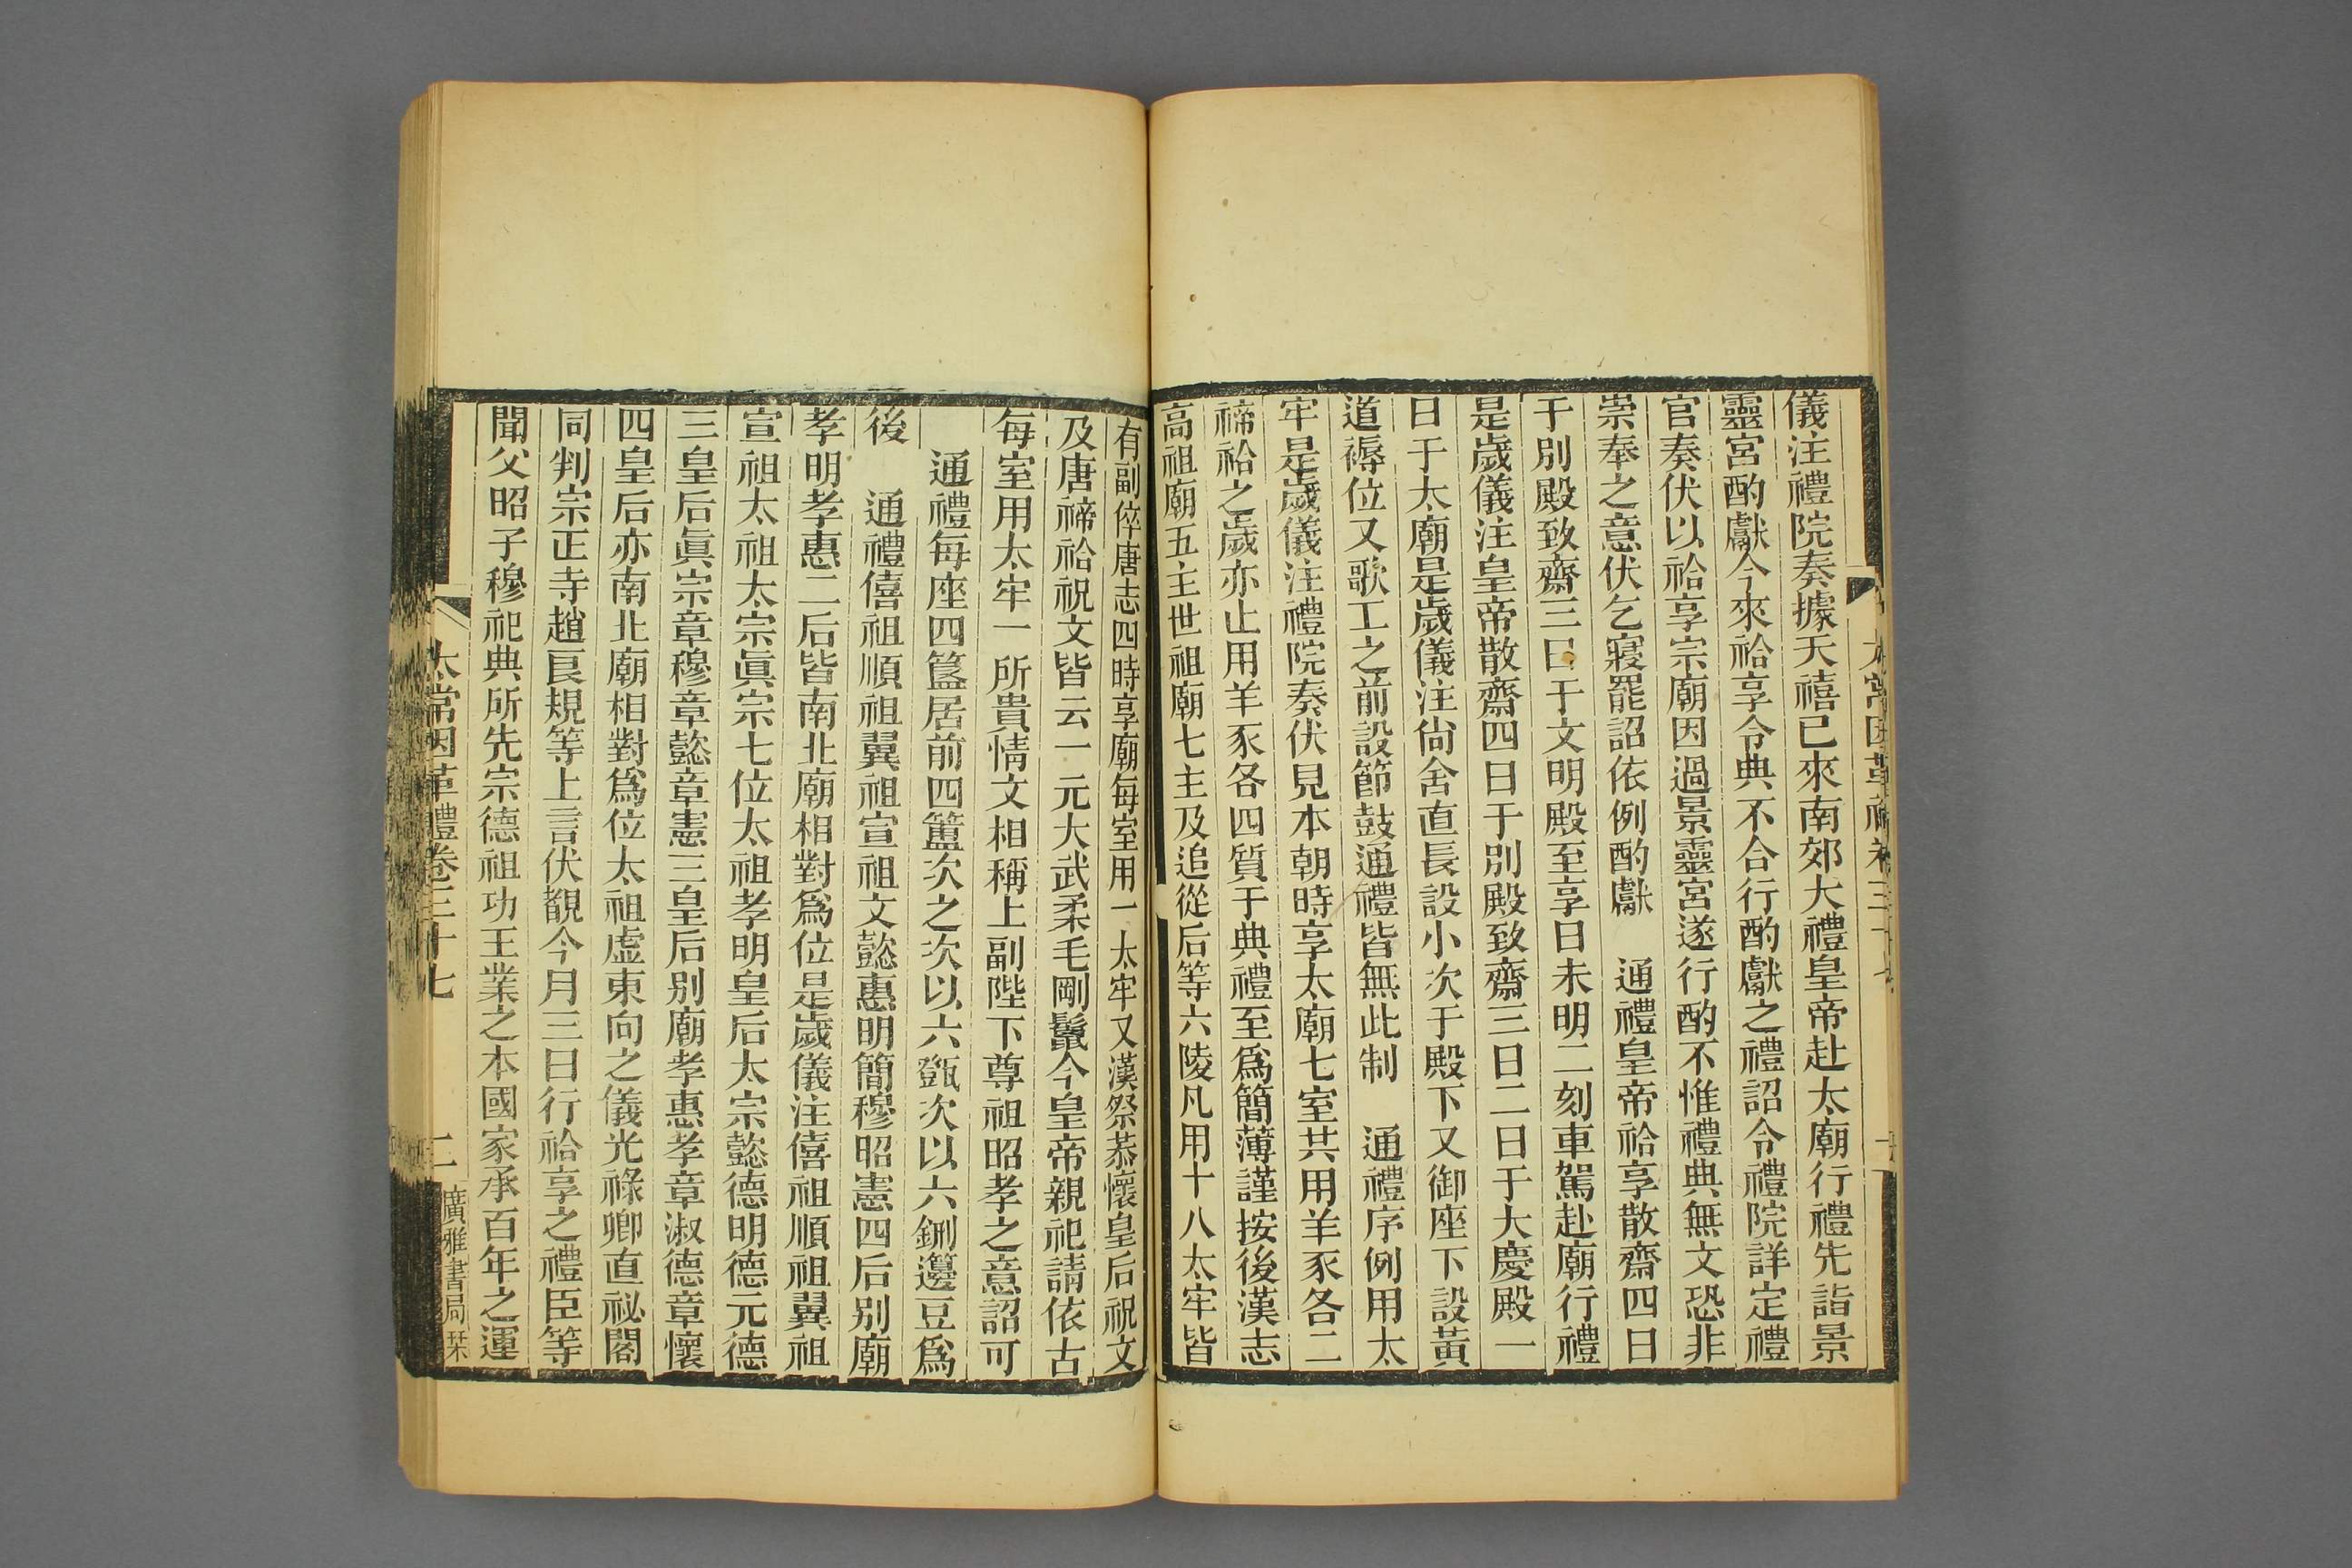 儀注禮院奏據天禧已來南郊大禮皇帝赴太廟行禮先詣景
靈宮酌獻今來祫享令典不合行酌獻之禮詔令禮院詳定禮
官奏伏以祫享宗廟因過景靈宮遂行酌不惟禮典無文恐非
崇奉之意伏乞寢罷詔依例酌獻　通禮皇帝祫享散齋四日
于別殿致齋三日于文明殿至享日未明二刻車駕赴廟行禮
是歲儀注皇帝散齋四日于別殿致齋三日二日于大慶殿一
日于太廟是歲儀注尙舍直長設小次于殿下又御座下設黃
道褥位又歌工之前設節鼓通禮皆無此制　通禮序例用太
牢是歲儀注禮院奏伏見本朝時享太廟七室共用羊豕各二
禘祫之歲亦止用羊豕各四質于典禮至爲簡薄謹按後漢志
高祖廟五主世祖廟七主及追從后等六陵凡用十八太牢皆
有副倅唐志四時享廟每室用一太牢又漢祭恭懷皇后祝文
及唐禘祫祝文皆云一元大武柔毛剛鬣今皇帝親祀請依古
每室用太牢一所貴情文相稱上副陛下尊祖昭孝之意詔可
通禮每座四簋居前四簠次之次以六㽅次以六鉶籩豆爲
後　通禮僖祖順祖翼祖宣祖文懿惠明簡穆昭憲四后別廟
孝明孝惠二后皆南北廟相對爲位是歲儀注僖祖順祖翼祖
宣祖太祖太宗眞宗七位太祖孝明皇后太宗懿德明德元德
三皇后眞宗章穆章懿章憲三皇后別廟孝惠孝章淑德章懷
四皇后亦南北廟相對爲位太祖虛東向之儀光祿卿直祕閣
同判宗正寺趙良規等上言伏覩今月三日行祫享之禮臣等
聞父昭子穆祀典所先宗德祖功王業之本國家承百年之運
太常因革禮卷三十七　二　廣雅書局栞